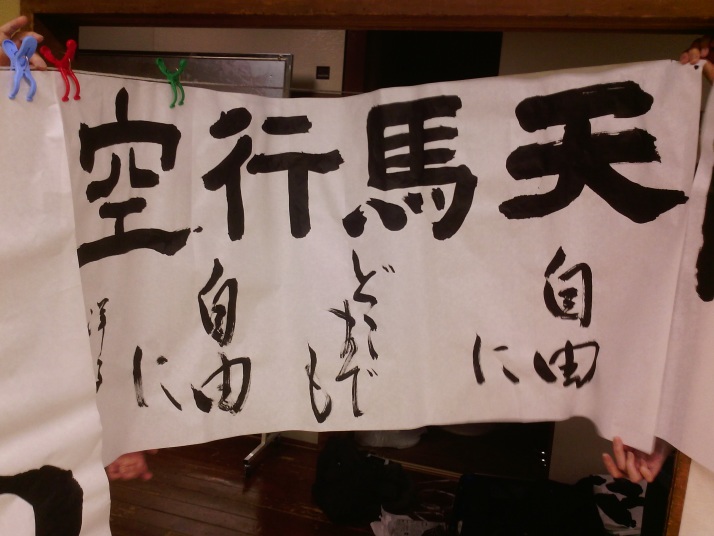 天馬行空
自由
に
どこまで
も
自由
に